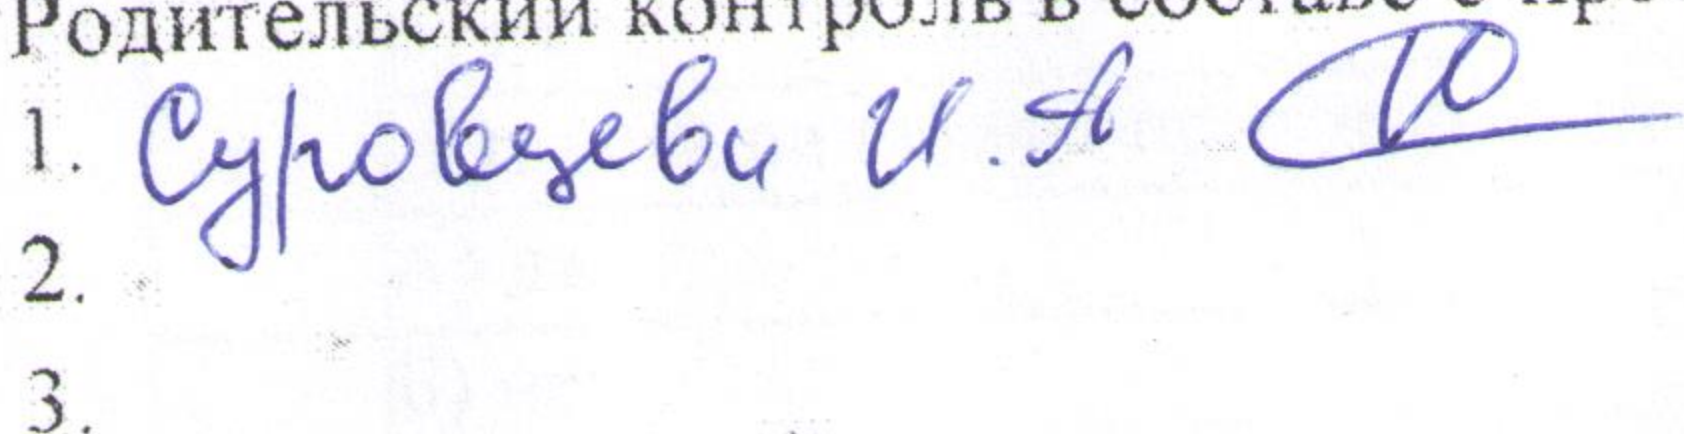 Родительский контроль в составе с
1. Суровцева И.А
2.
3.